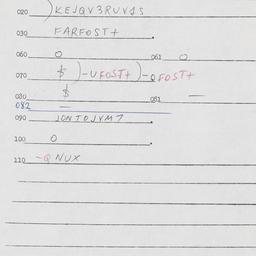 020 )KEJQV3RUVSS
030 FARFOST+
060 O 061 O
070 $)-UFOST+)-QFOST+
080 $ 081 —
082 —
090 JONTOJVM7
100 O
110 -Q NUX